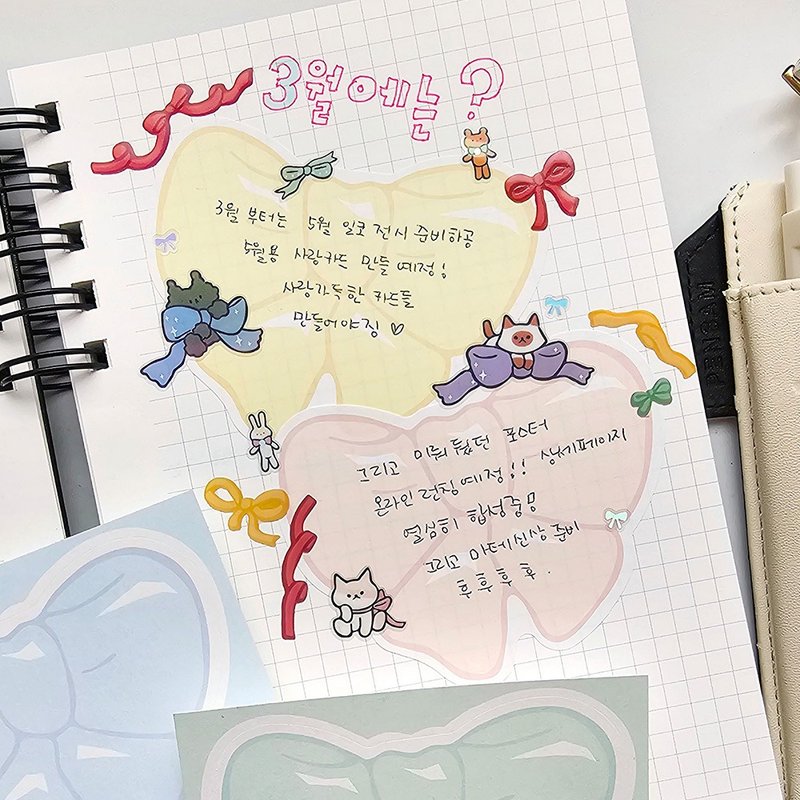 3월에는?
3월 부터는 5월 일코 전시 준비하공
5월용 사랑카드 만들 예정!
사랑가득한 카드들
만들어야징 ♡
그리고 미뤄 뒀던 포스터
온라인 런칭예정!! 상세페이지
열심히 합성중
그리고 마테신상 준비
후후후후.
PENCAM